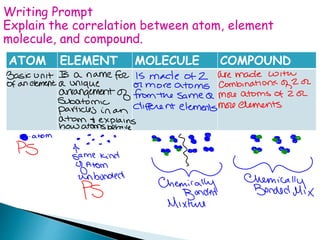 Writing Prompt
Explain the correlation between atom, element
molecule, and compound.
ATOM ELEMENT MOLECULE COMPOUND
Basic unit
of an element
Is a name for
a unique
arrangement of
subatomic
particles in an
atom & explains
how atoms behave
Is made of 2
or more atoms
from the same or
different elements
are made with
combinations of 2 or
more atoms of 2 or
more elements
atom
PS
same kind
of Atom
unbonded
PS
Chemically
Bonded
Mixture
Chemically
Bonded Mix